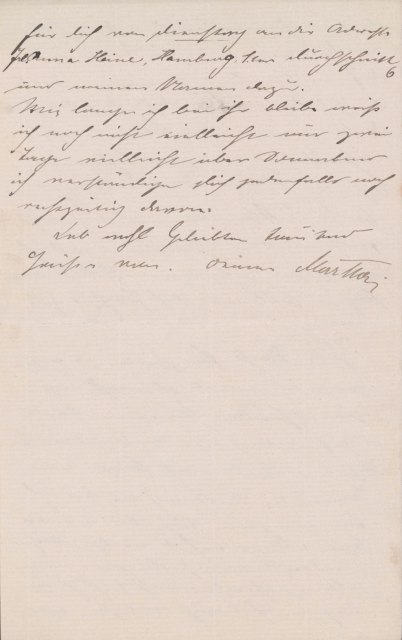 für dich von Dienstag an die Adresse
Johanna Heine, Hamburg 1ter Durchschnitt
6
und meinen Namen dazu.
Wie lange ich bei ihr bleibe weiß
ich noch nicht vielleicht nur zwei
Tage vielleicht über Sonnabend
ich verständige dich jedenfalls noch
rechtzeitig davon.
Leb wohl Geliebter tausend
Grüße von deiner Martha